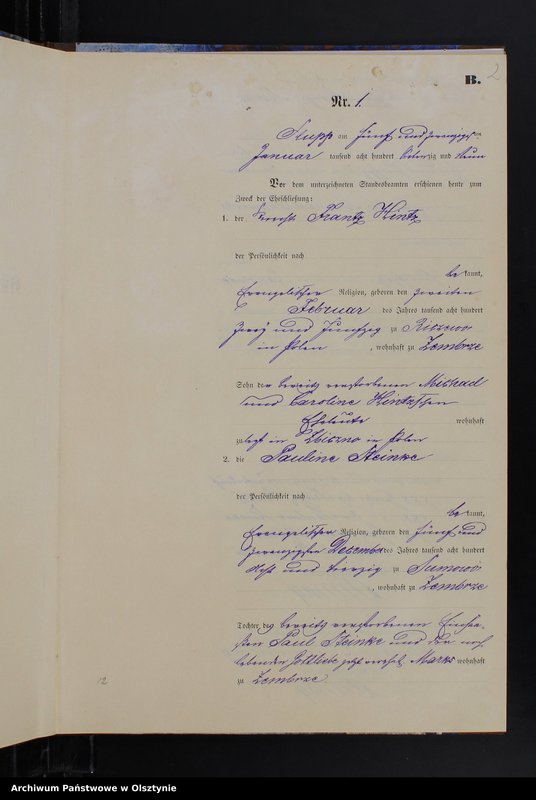 B. 2
Nr. 1.
Stupp am fünf und zwanzigsten
Januar tausend acht hundert achtzig und neun
Vor dem unterzeichneten Standesbeamten erschienen heute zum
Zweck der Eheschließung:
1. der Knecht Frantz Hintz
der Persönlichkeit nach
be kannt,
evangelischer Religion, geboren den zweiten
Februar des Jahres tausend acht hundert
zwei und fünfzig zu
in Polen, wohnhaft zu Zembrze
Sohn der bereits verstorbenen Michael
und Caroline Hintz'schen
Eheleute wohnhaft
zuletzt in Zbiczno in Polen
2. die Pauline Steinke
der Persönlichkeit nach
be kannt,
evangelischer Religion, geboren den fünf und
zwanzigsten Dezember des Jahres tausend acht hundert
acht und vierzig zu Sumowo
, wohnhaft zu Zembrze
Tochter des bereits verstorbenen
Paul Steinke und der noch
lebenden Gottliebe jetzt verehel. Marks wohnhaft
zu Zembrze.
12
Archiwum Państwowe w Olsztynie